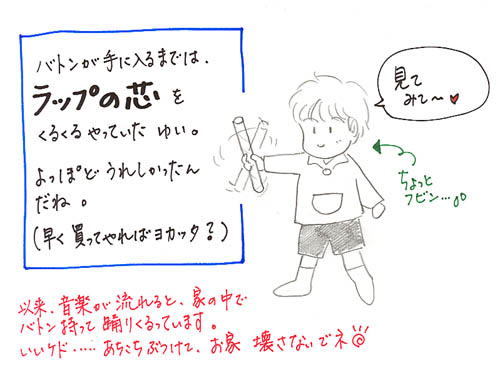 バトンが手に入るまでは、
ラップの芯を
くるくるやっていた ゆい。
よっぽど うれしかったん
だね。
(早く買ってやればヨカッタ?)
見て
みて〜♥
ちょっと
フビン…。
以来、音楽が流れると、家の中で
バトン持って踊りくるっています。
いいケド……あちこちぶつけて、お家 壊さないでネ